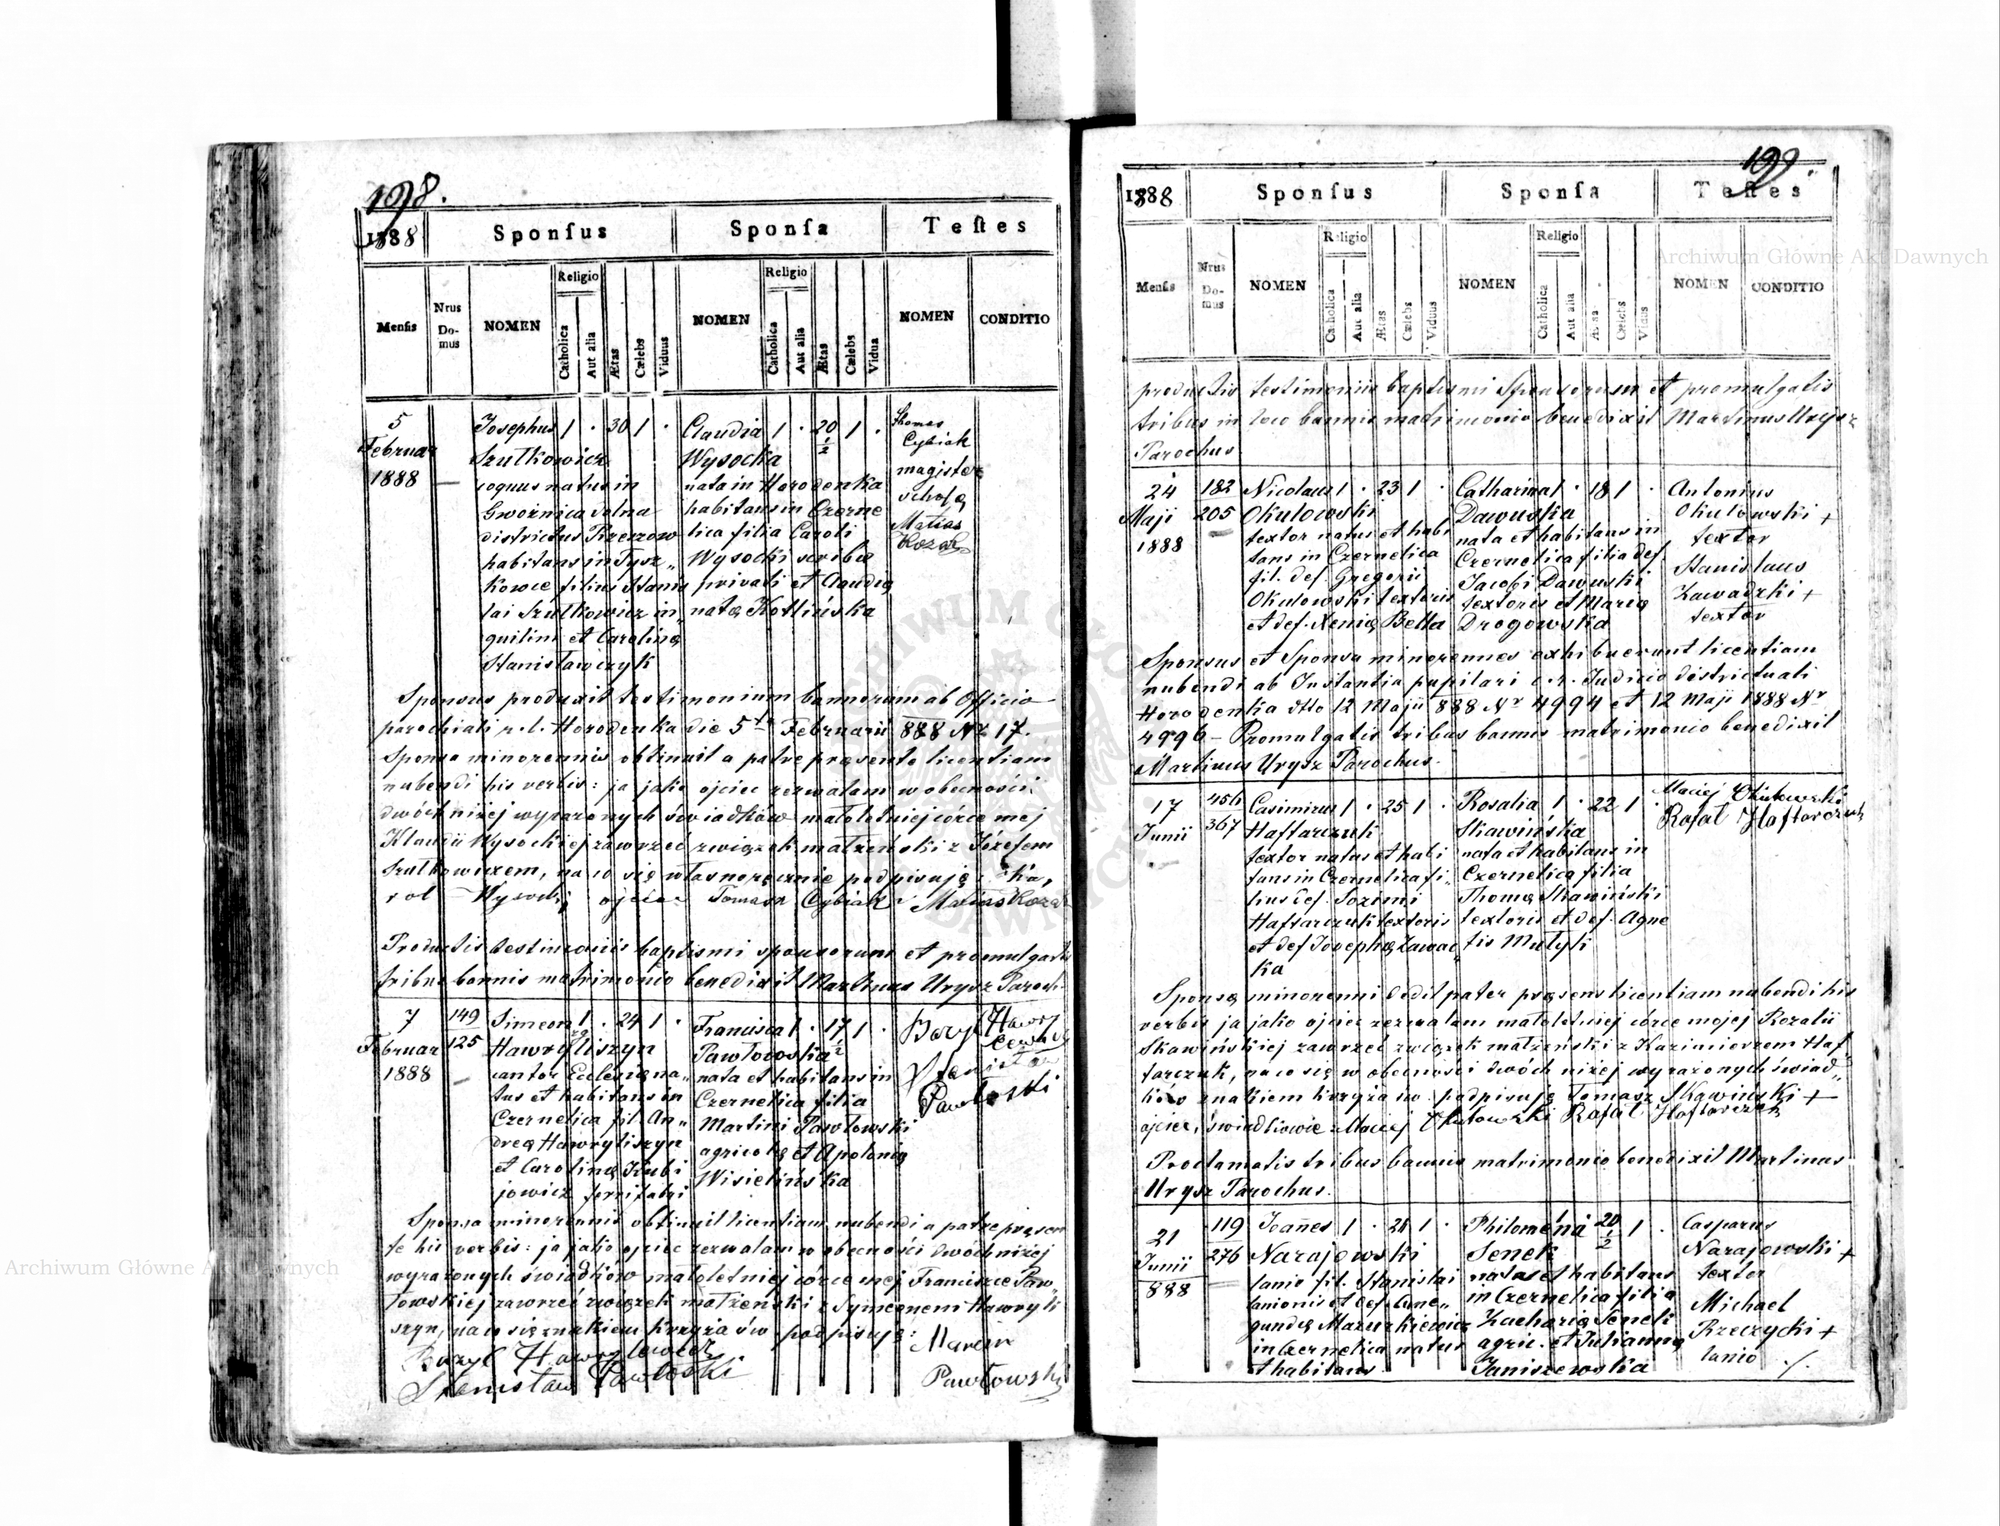 198.
1888
Sponſus
Sponſa
Teſtes
Menſis
Nrus Domus
NOMEN
Religio
Catholica
Aut alia
Ætas
Cælebs
Viduus
NOMEN
Religio
Catholica
Aut alia
Ætas
Cælebs
Vidua
NOMEN
CONDITIO
5
Februar
1888
—
Josephus 1 . 30 1 .
Szutkowicz
coquus natus in
Gwoźnica dolna
districtus Rzeszow
habitans in Tysz„
kowce filius Stanis
lai Szutkowicz in„
quilini et Carolinę
Stanisławczyk
Claudia 1 . 20 1/2 1 .
Wysocka
nata in Horodenka
habitans in Czerne
lica filia Caroli
Wysocki scribę
privati et Claudię
natę Kotlińska
Thomas
Cybiak
magister
scholę
Matias
Kozak
Sponsus produxit testimonium bannorum ab Officio
parochiali r. l. Horodenka die 5ta Februarii 888 Nr 17.
Sponsa minorennis obtinuit a patre pręsente licentiam
nubendi his verbis: ja jako ojciec zezwalam w obecności
dwóch niżej wyrażonych świadków małoletniej córce mej
Klaudii Wysockiej zawrzeć związek małżeński z Józefem
Szutkowiczem, na co się własnoręcznie podpisuję: Ka„
rol Wysocki ojciec Tomasz Cybiak Matias Kozak
Productis testimoniis baptismi sponsorum et promulgatis
tribus bannis matrimonio benedixit Martinus Urysz Paroch.
7
Februar
1888
149
125
—
Simeon 1 . 24 1 .
Hawryliszyn
cantor Ecclesię na„
tus et habitans in
Czernelica fil. An„
dreę Hawryliszyn
et Carolinę Kubi
jowicz
Francisca 1 . 17 1/2 1 .
Pawłowska
nata et habitans in
Czernelica filia
Martini Pawłowski
agricolę et Apolonię
Wisielińska
Bazyl Hawry
Stanisław
Pawłoski
Sponsa minorennis obtinuit licentiam nubendi a patre pręsen
te his verbis: ja jako ojciec zezwalam w obecności dwóch niżej
wyrażonych świadków małoletniej córce mej Franciszce Paw„
łowskiej zawrzeć związek małżeński z Symeonem Hawryli
szyn, na co się znakiem krzyża św podpisuję: Marcin
Bazyl Hawrylewicz
Stanisław Pawłoski Pawłowski
199.
1888
Sponſus
Sponſa
Teſtes
Menſis
Nrus Domus
NOMEN
Religio
Catholica
Aut alia
Ætas
Cælebs
Viduus
NOMEN
Religio
Catholica
Aut alia
Cælebs
NOMEN
CONDITIO
productis testimoniis baptismi Sponsorum et promulgatis
tribus in loco bannis matrimonio benedixit Martinus Urysz
Parochus
24
Maji
1888
182
205
—
Nicolaus 1 . 23 1 .
Okulowski
textor natus et habi
tans in Czernelica
fil. def. Gregorii
Okulowski textoris
et def. Xenię Bella
Catharina 1 . 18 1 .
Dawuska
nata et habitans in
Czernelica filia def.
Jacobi Dawuski
textoris et Marię
Drogowska
Antonius
Okulowski +
textor
Stanislaus
Zawadzki +
textor
Sponsus et Sponsa minorennes exhibuerunt licentiam
nubendi ab Instantia pupilari c. r. Judicio districtuali
Horodenka dtto 12 Maji 888 Nr 4994 et 12 Maji 1888 Nr
4996 — Promulgatis tribus bannis matrimonio benedixit
Martinus Urysz Parochus.
17
Junii
456
367
Casimirus 1 . 25 1 .
Haftarczuk
textor natus et habi
tans in Czernelica fi„
lius def. Sozimi
Haftarczuk textoris
et def Josephę Zawac
ka
Rosalia 1 . 22 1 .
Skawińska
nata et habitans in
Czernelica filia
Thomę Skawiński
textoris et def. Agne
tis Mulyk
Maciej Okulowski
Rafał Haftarczuk
Sponsę minorenni dedit pater pręsens licentiam nubendi his
verbis ja jako ojciec zezwalam małoletniej córce mojej Rozalii
Skawińskiej zawrzeć związek małżeński z Kazimierzem Haf
tarczuk, na co się w obecności dwóch niżej wyrażonych świad„
ków znakiem krzyża św. podpisuję Tomasz Skawiński +
ojciec, świadkowie: Maciej Okulowski Rafał Haftarczuk
Proclamatis tribus bannis matrimonio benedixit Martinus
Urysz Parochus.
21
Junii
888
119
276
Joañes 1 . 21 1 .
Narajowski
lanio fil. Stanislai
lanionis et def. Cune„
gundę Mazurkiewicz
in Czernelica natus
et habitans.
Philomena 1 . 20 1/2 1 .
Senek
nata et habitans
in Czernelica filia
Zacharię Senek
agric. et Juliannę
Janiszewska
Casparus
Narajowski +
textor
Michael
Rzeczycki +
lanio ./.
Archiwum Główne Akt Dawnych
Archiwum Główne Akt Dawnych